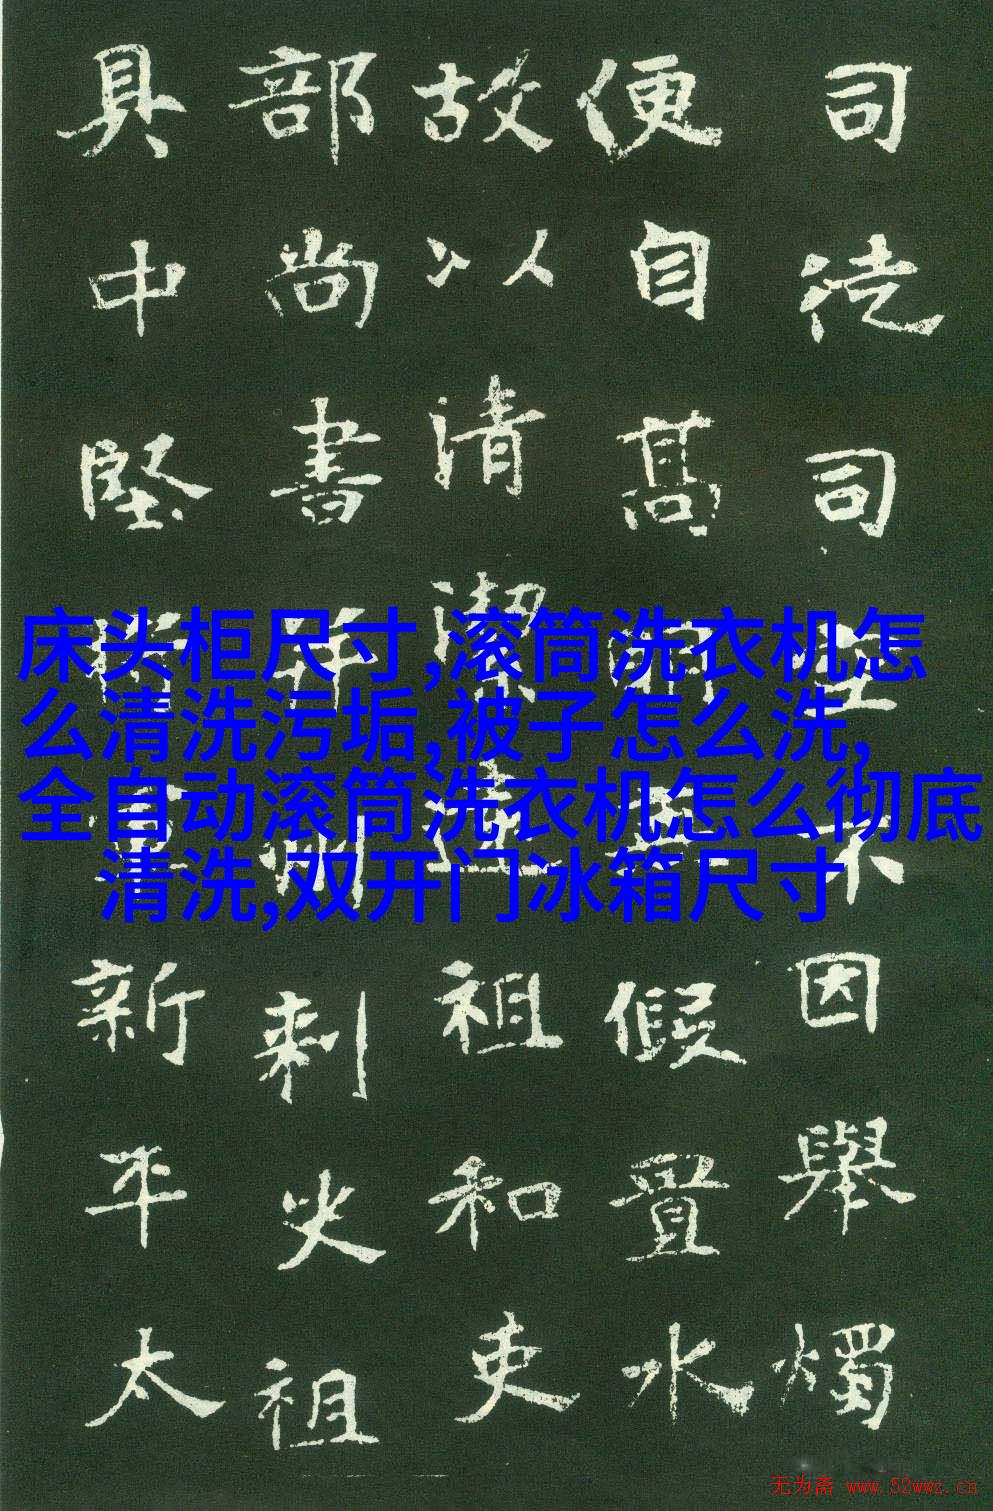 司徒司空不因舉燭
便自高明無假置水
故以清潔遠祖和吏
部尚書并州刺史祖
具中堅將軍新平太
床头柜尺寸,滚筒洗衣机怎
么清洗污垢,被子怎么洗,
全自动滚筒洗衣机怎么彻底
清洗,双开门冰箱尺寸
无为斋 www.52wwz.cn